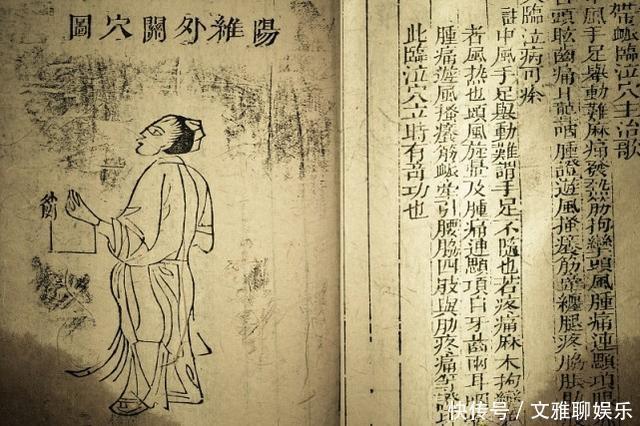 帶脈臨泣穴主治歌
中風手足舉動難麻痛發熱筋拘攣頭風腫痛連顋項眼
目頭眩齒痛耳聾咽腫證遊風搔癢筋牽纏腿疼脇脹肋
臨泣病可瘳
註中風手足舉動難謂手足不隨也若疼痛麻木拘攣
者風熱也頭風旋暈及腫痛連顋項目牙齒兩耳咽
腫痛遊風搔癢筋脈牽引腰脇四肢與肋疼痛等證
此臨泣穴立時有奇功也
陽維外關穴圖
快传号 / 文雅聊娱乐